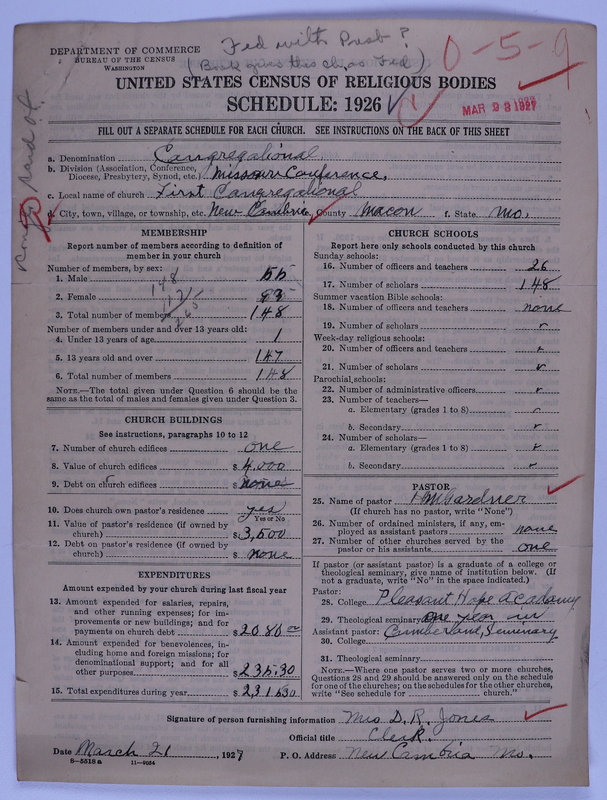 Fed with Presb?
DEPARTMENT OF COMMERCE
BUREAU OF THE CENSUS
WASHINGTON
0-5-9
UNITED STATES CENSUS OF RELIGIOUS BODIES
SCHEDULE: 1926
MAR 23 1927
FILL OUT A SEPARATE SCHEDULE FOR EACH CHURCH. SEE INSTRUCTIONS ON THE BACK OF THIS SHEET
a. Denomination Congregational
b. Division (Association, Conference, Diocese, Presbytery, Synod, etc.) Missouri Conference,
c. Local name of church First Congregational
d. City, town, village, or township, etc. New Cambria, County Macon f. State Mo.
MEMBERSHIP
Report number of members according to definition of
member in your church
Number of members, by sex:
1. Male 55
2. Female 93
3. Total number of members 148
148
112
260
Number of members under and over 13 years old:
4. Under 13 years of age 1
5. 13 years old and over 147
6. Total number of members 148
NOTE.—The total given under Question 6 should be the
same as the total of males and females given under Question 3.
CHURCH BUILDINGS
See instructions, paragraphs 10 to 12
7. Number of church edifices one
8. Value of church edifices $ 4,000
9. Debt on church edifices $ none
10. Does church own pastor's residence yes
Yes or No
11. Value of pastor's residence (if owned by
church) $ 3,500
12. Debt on pastor's residence (if owned by
church) $ none
EXPENDITURES
Amount expended by your church during last fiscal year
13. Amount expended for salaries, repairs,
and other running expenses; for im-
provements or new buildings; and for
payments on church debt $ 2080 00
14. Amount expended for benevolences, in-
cluding home and foreign missions; for
denominational support; and for all
other purposes $ 235.30
15. Total expenditures during year $ 2315.30
CHURCH SCHOOLS
Report here only schools conducted by this church
Sunday schools:
16. Number of officers and teachers 26
17. Number of scholars 148
Summer vacation Bible schools:
18. Number of officers and teachers none
19. Number of scholars
Week-day religious schools:
20. Number of officers and teachers
21. Number of scholars
Parochial schools:
22. Number of administrative officers
23. Number of teachers—
a. Elementary (grades 1 to 8)
b. Secondary
24. Number of scholars—
a. Elementary (grades 1 to 8)
b. Secondary
PASTOR
25. Name of pastor Gardner
(If church has no pastor, write "None")
26. Number of ordained ministers, if any, em-
ployed as assistant pastors none
27. Number of other churches served by the
pastor or his assistants one
If pastor (or assistant pastor) is a graduate of a college or
theological seminary, give name of institution below. (If
not a graduate, write "No" in the space indicated.)
Pastor:
28. College Pleasant Hope Academy
29. Theological seminary one year in
Assistant pastor: Cumberland, Seminary
30. College
31. Theological seminary
NOTE.—Where one pastor serves two or more churches,
Questions 28 and 29 should be answered only on the schedule
for one of the churches; on the schedules for the other churches,
write "See schedule for church."
Signature of person furnishing information Mrs D. R. Jones
Official title Clerk.
Date March 21, 1927 P. O. Address New Cambria Mo.
8-5518a 11-9054